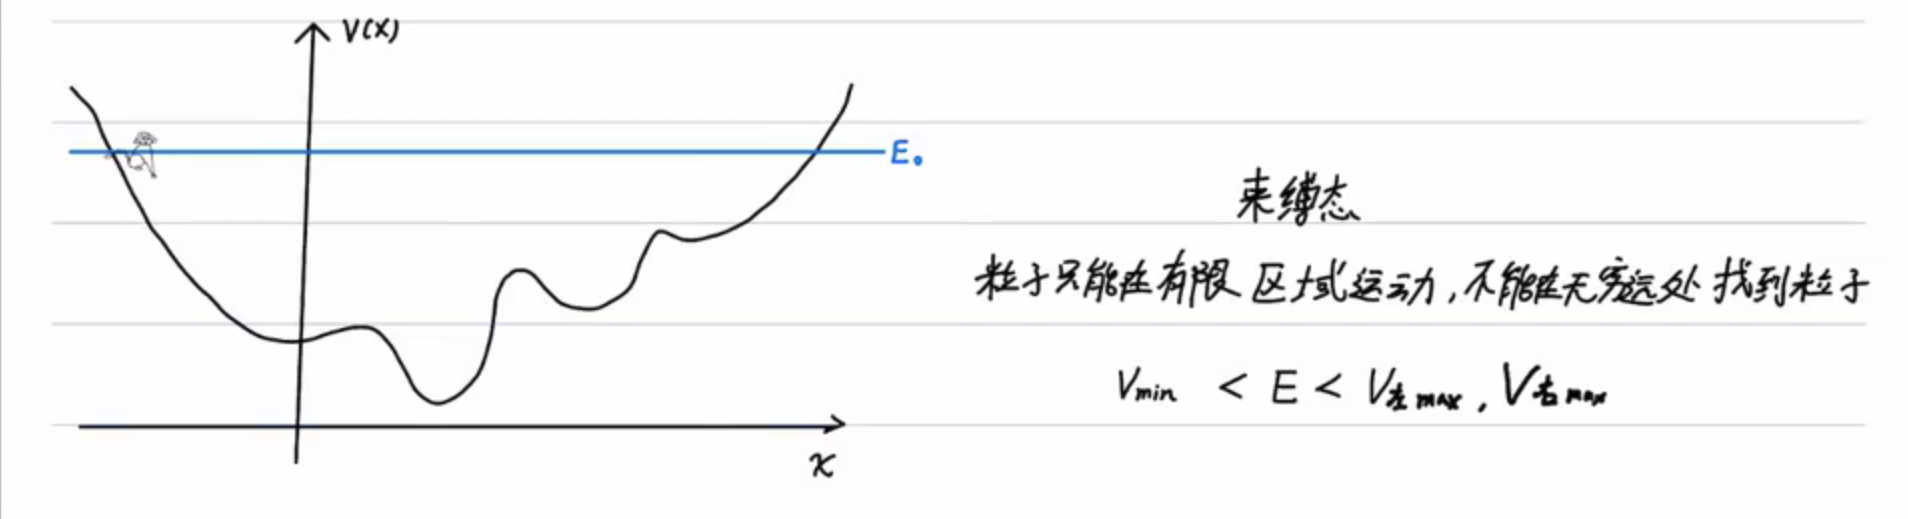 V(x)
E₀
束缚态
粒子只能在有限区域运动,不能在无穷远处找到粒子
Vmin < E < V左max, V右max
x